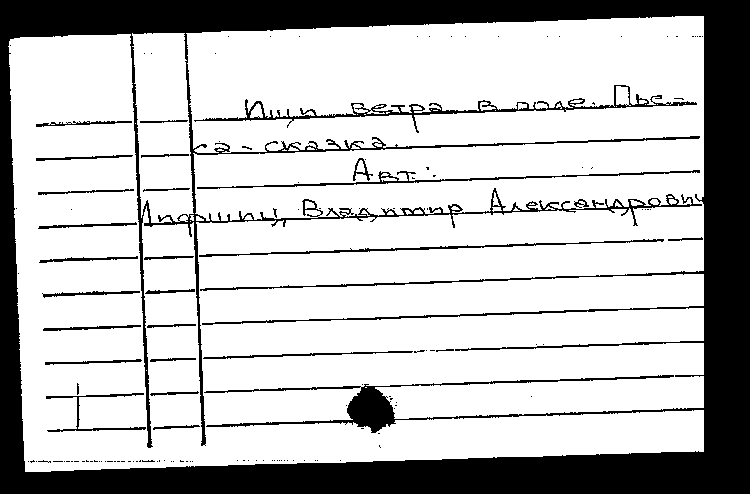 Ищи ветра в поле. Пье-
са-сказка.
Авт.:
Лифшиц, Владимир Александрович